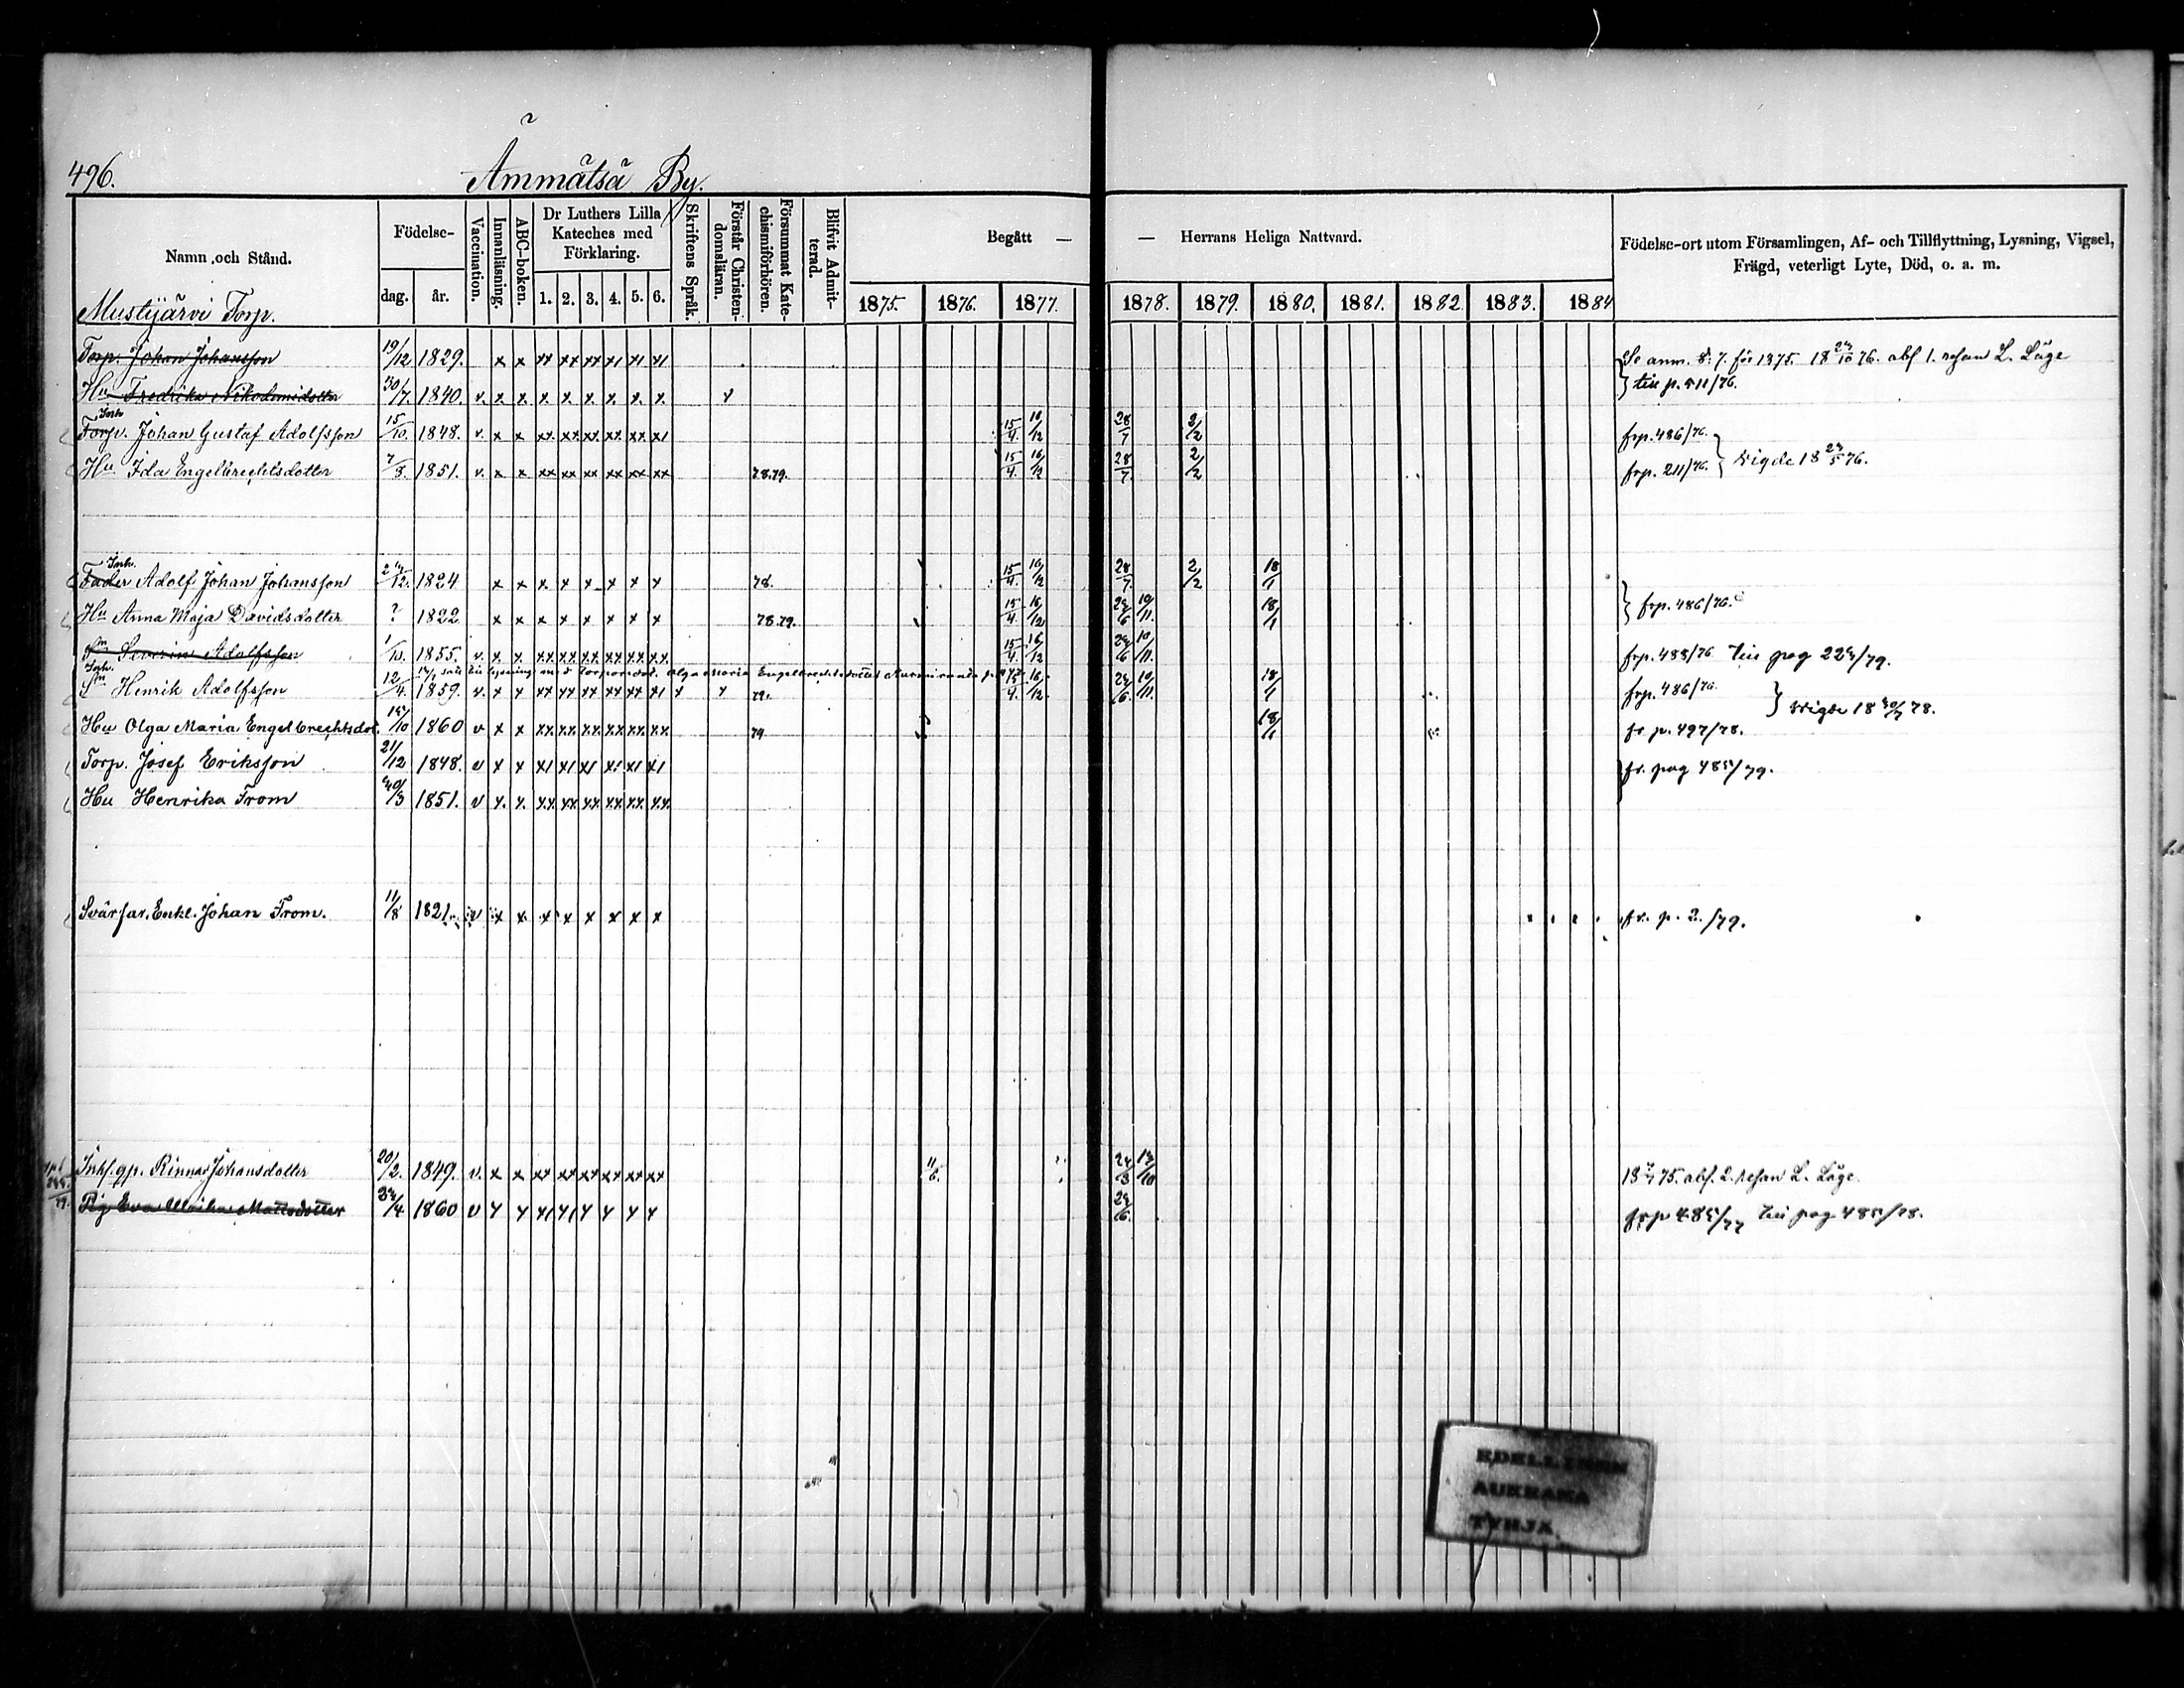 496.
Ämmätsä By.
Namn och Stånd.
Födelse-
dag.
år.
Vaccination.
Innanläsning.
ABC-boken.
Dr Luthers Lilla
Kateches med
Förklaring.
1. 2. 3. 4. 5. 6.
Skriftens Språk.
Förstår Christen-
domsläran.
Försummat Kate-
chismiförhören.
Blifvit Admit-
terad.
Begått —
— Herrans Heliga Nattvard.
1875. 1876. 1877. 1878. 1879. 1880. 1881. 1882. 1883. 1884
Födelse-ort utom Församlingen, Af- och Tillflyttning, Lysning, Vigsel,
Frägd, veterligt Lyte, Död, o. a. m.
Mustijärvi Torp.
Torp. Johan Johansson 19/12 1829. x x xx xx xx x1 x1 x1 Se anm. s. 7. för 1875. abs 1. resan L. Läge
Hu Fredrika Nikodemidotter 30/7. 1840. v. x. x. x. x. x. x. x. x. x till p. 511/76.
Inh.
Torp. Johan Gustaf Adolfsson 15/10. 1848. v. x x xx. xx xx xx xx x1 15/4. 16/12 28/7 2/2 frp. 486/76.
Hu Ida Engelbrechtsdotter 7/3. 1851. v. x x xx xx xx xx xx xx 78.79. 15/4. 16/12 28/7. 2/2 frp. 211/76. Vigde 18 76.
Inh.
Fader Adolf Johan Johansson 1824. x x x. x x x x x 78. 15/4. 16/12 28/7. 2/2 18/1
Hu Anna Maja Davidsdotter ? 1822 x x x x x x x x 78.79. 15/4. 16/12 10/11. 18/1 frp. 486/76.
Sn Severin Adolfsson 1/10. 1855. v. x. x. xx xx. xx xx xx. xx. 15/4. 16/12 10/11. frp. 488/76 till pag
till lysning med torparedot. Olga Maria Engelbrechtsdotter
Inh.
Sn Henrik Adolfsson 12/4. 1859. v. x x xx xx xx xx xx x1 x x 79. 15/4. 16/12. 10/11. 18/1 frp. 486/76.
Vigde 18 78.
Hu Olga Maria Engelbrechtsdot. 1860 v x x xx. xx xx. xx. xx. xx. 79 18/1 fr. p. 497/78.
Torp. Josef Eriksson 21/12 1848. v x x x1 x1 x1 x1 x1 x1 fr. pag 485/79.
Hu Henrika From 1851. v x. x. xx xx xx xx xx xx
Svärfar. Enkl. Johan From. 11/8 1821. v x x x x x x x x fr. p. 2./79.
Inhs. qp. Rinna Johansdotter 20/2. 1849. v. x x xx xx xx xx xx xx 11/6. 75. abs. 2. resan L. Läge.
Pig Eva Ulrika Mattsdotter 1860 v x x x1 x1 x x x x till pag 485/78.
EDELLINEN
AUKEAMA
TYHJÄ